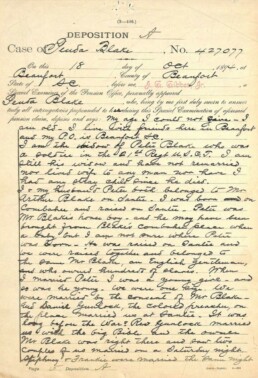 DEPOSITION A
Case of Venta Blake, No. 427077
On this 18 day of Oct, 1894, at
Beaufort, County of Beaufort
State of S.C., before me,
Special Examiner of the Pension Office, personally appeared
Venta Blake, who, being by me first duly sworn to answer
truly all interrogatories propounded to her during this Special Examination of aforesaid
pension claim, deposes and says: My age I could not give – I
am old. I live here in Beaufort
and my P.O. is Beaufort S.C.
I am the widow of Peter Blake who was
a soldier in the 21st Regt U.S.C.T. I am
still his widow and have not remarried
nor lived with any man nor have I
had any child since he died.
I & my husband Peter both belonged to Mr
Arthur Blake on Santee. I was born on
Combahee and raised on Santee. Peter was
Mr Blake's house boy – and he may have been
brought from Blake's Combahee place when
a baby, but I am not sure where Peter
was born. He was raised on Santee and
we were raised together and belonged to
the same Mr Blake, an English gentleman,
and who owned hundred of slaves. When
I married Peter I was a young girl and
so was he young. We were one age. We
were married by the consent of Mr Blake
and Daniel the colored preacher on
the place married us at Santee. It was
long before the War
Mr Blake was right there and saw two
couples of us married on a Saturday night.
were married the same night
Page Deposition A